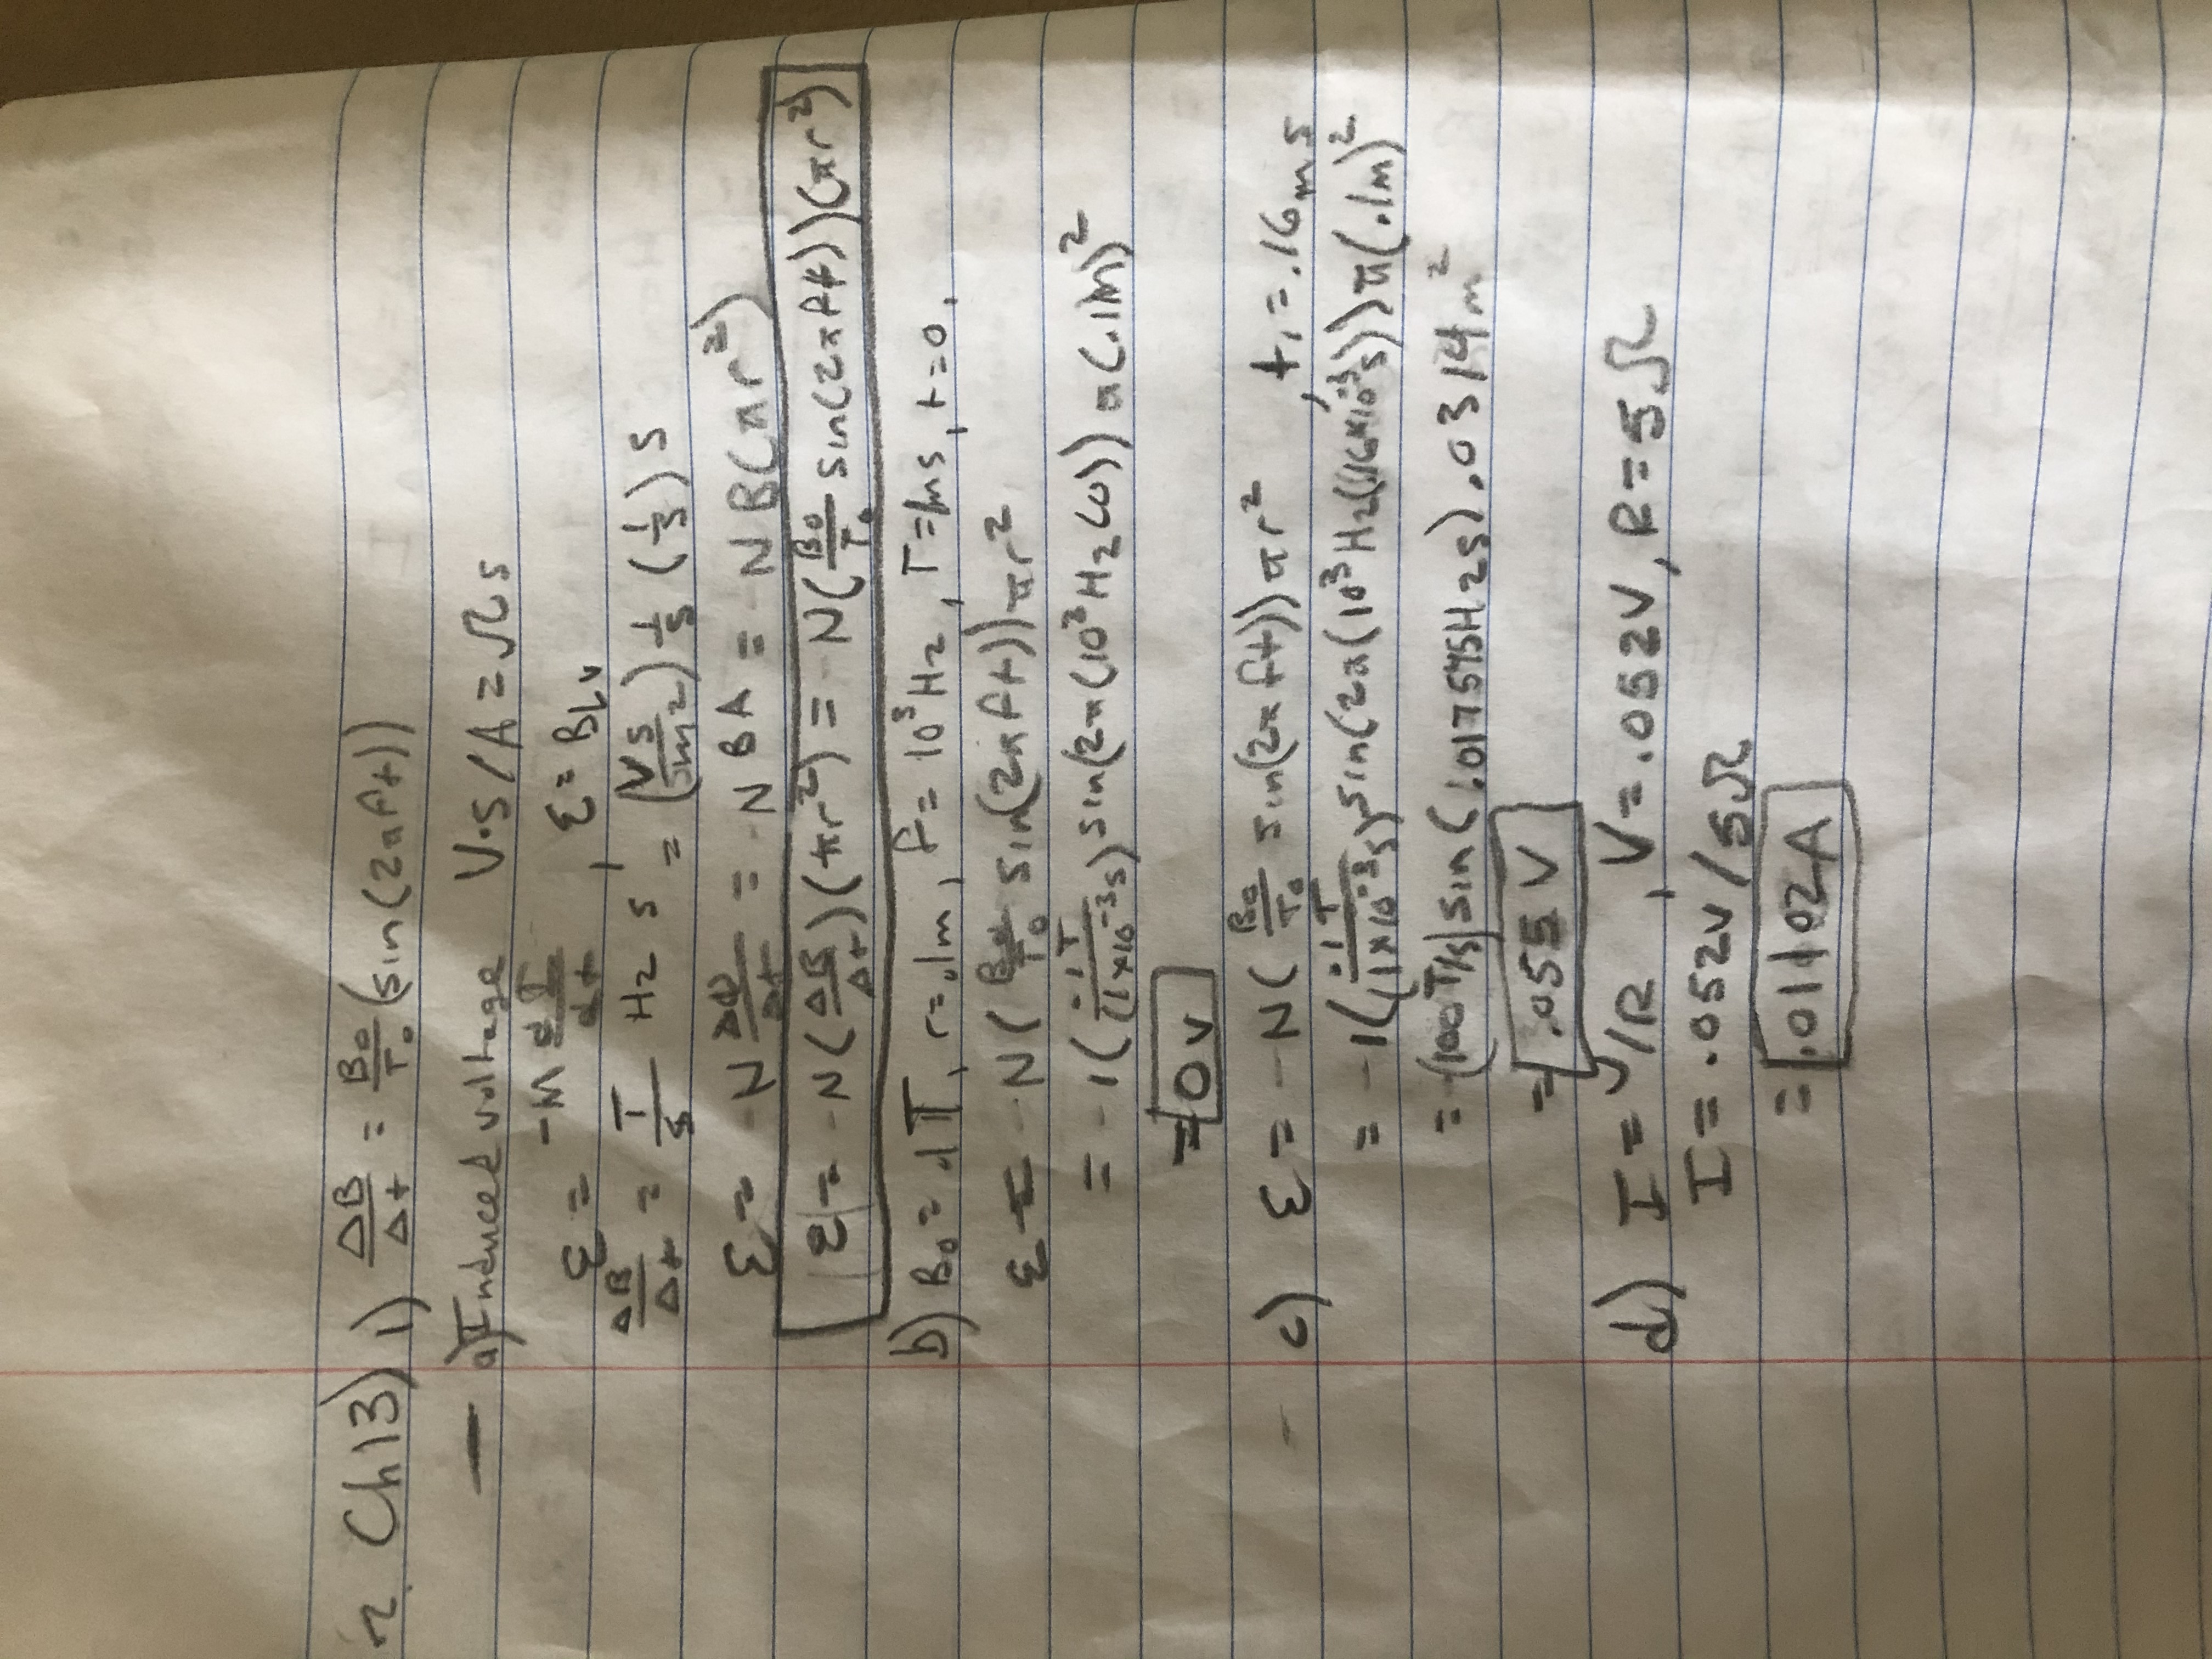 2. Ch 13) 1) ΔB/Δt = B₀/T₀ (sin(2πft))
a) Induced voltage V·s/A = Ω s
ε = -M dI/dt , ε = BLv
ΔB/Δt = T/s Hz s = (V s/m²) 1/s (1/s) s
ε = -N ΔΦ/Δt = -N BA = -N B(πr²)
ε = -N(ΔB/Δt)(πr²) = -N(B₀/T₀ sin(2πft))(πr²)
b) B₀ = .1T, r = .1m, f = 10³Hz, T = 1ms, t = 0,
ε = -N( B₀/T₀ sin(2πft))πr²
= -1( .1T/(1x10⁻³s) sin(2π(10³Hz(0)) π(.1m)²
= 0 v
c) ε = -N( B₀/T₀ sin(2πft))πr² , t₁ = .16ms
= -1( .1T/(1x10⁻³s) sin(2π(10³Hz(.16x10⁻³s))π(.1m)²
= -(100 T/s) sin( .017545Hzs) .0314m²
= .055 V
d) I = V/R , V = .052V, R = 5Ω
I = .052v / 5Ω
= .01102A